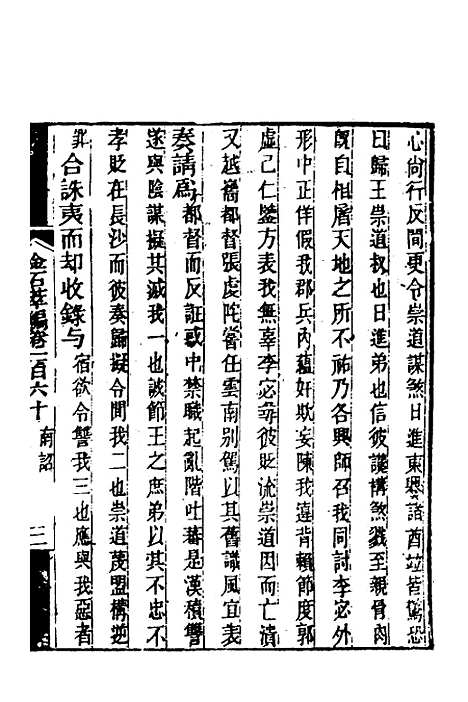 心尚行反間更令崇道謀煞日進東爨諸酋並皆驚恐
曰歸王崇道叔也日進弟也信彼讒構煞戮至親骨肉
旣自相屠天地之所不祐乃各興師召我同討李宓外
形中正佯假我郡兵內蘊奸欺妄陳我違背賴節度郭
虛己仁鑒方表我無辜李宓尋彼貶流崇道因而亡潰
又越嶲都督張虔陀嘗任雲南別駕以其舊識風宜表
奏請爲都督而反誑惑中禁職起亂階吐蕃是漢積讐
遂與陰謀擬共滅我一也誠節王之庶弟以其不忠不
孝貶在長沙而彼奏歸擬令間我二也崇道蔑盟構逆
罪合誅夷而却收錄与宿欲令讐我三也應與我惡者
金石萃編卷一百六十 南詔 二